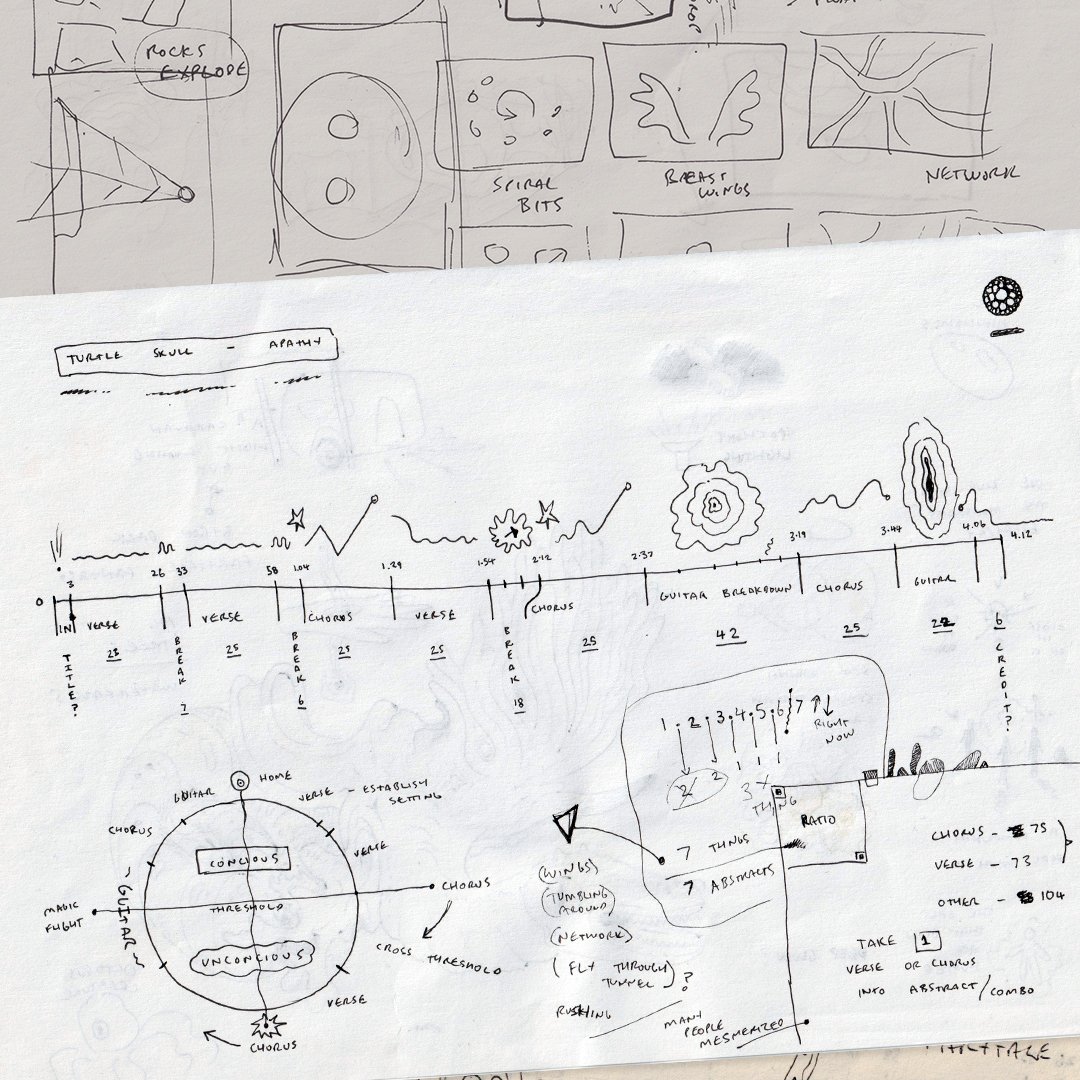 ROCKS
EXPLODE
SPIRAL
BITS
BREAST
WINGS
NETWORK
TURTLE SKULL - APATHY
0
3
26
33
58
1.04
1.29
1.54
2.12
2.37
3.19
3.44
4.06
4.12
IN
VERSE
VERSE
CHORUS
VERSE
CHORUS
GUITAR BREAKDOWN
CHORUS
GUITAR
23
25
25
25
25
42
25
22
6
TITLE?
BREAK
7
BREAK
6
BREAK
18
CREDIT?
1. 2. 3. 4. 5. 6 7
RIGHT
NOW
2 2
3
THING
7 THINGS
7 ABSTRACTS
RATIO
CHORUS - 75
VERSE - 73
OTHER - 104
TAKE 1
VERSE OR CHORUS
INTO ABSTRACT/COMBO
HOME
GUITAR
VERSE - ESTABLISH
SETTING
CHORUS
VERSE
CONCIOUS
CHORUS
MAGIC
FLIGHT
~ GUITAR ~
THRESHOLD
CROSS THRESHOLD
UNCONCIOUS
VERSE
CHORUS
(WINGS)
(TUMBLING
AROUND)
(NETWORK)
(FLY THROUGH
TUNNEL)?
RUSHING
MANY
PEOPLE
MESMERIZED